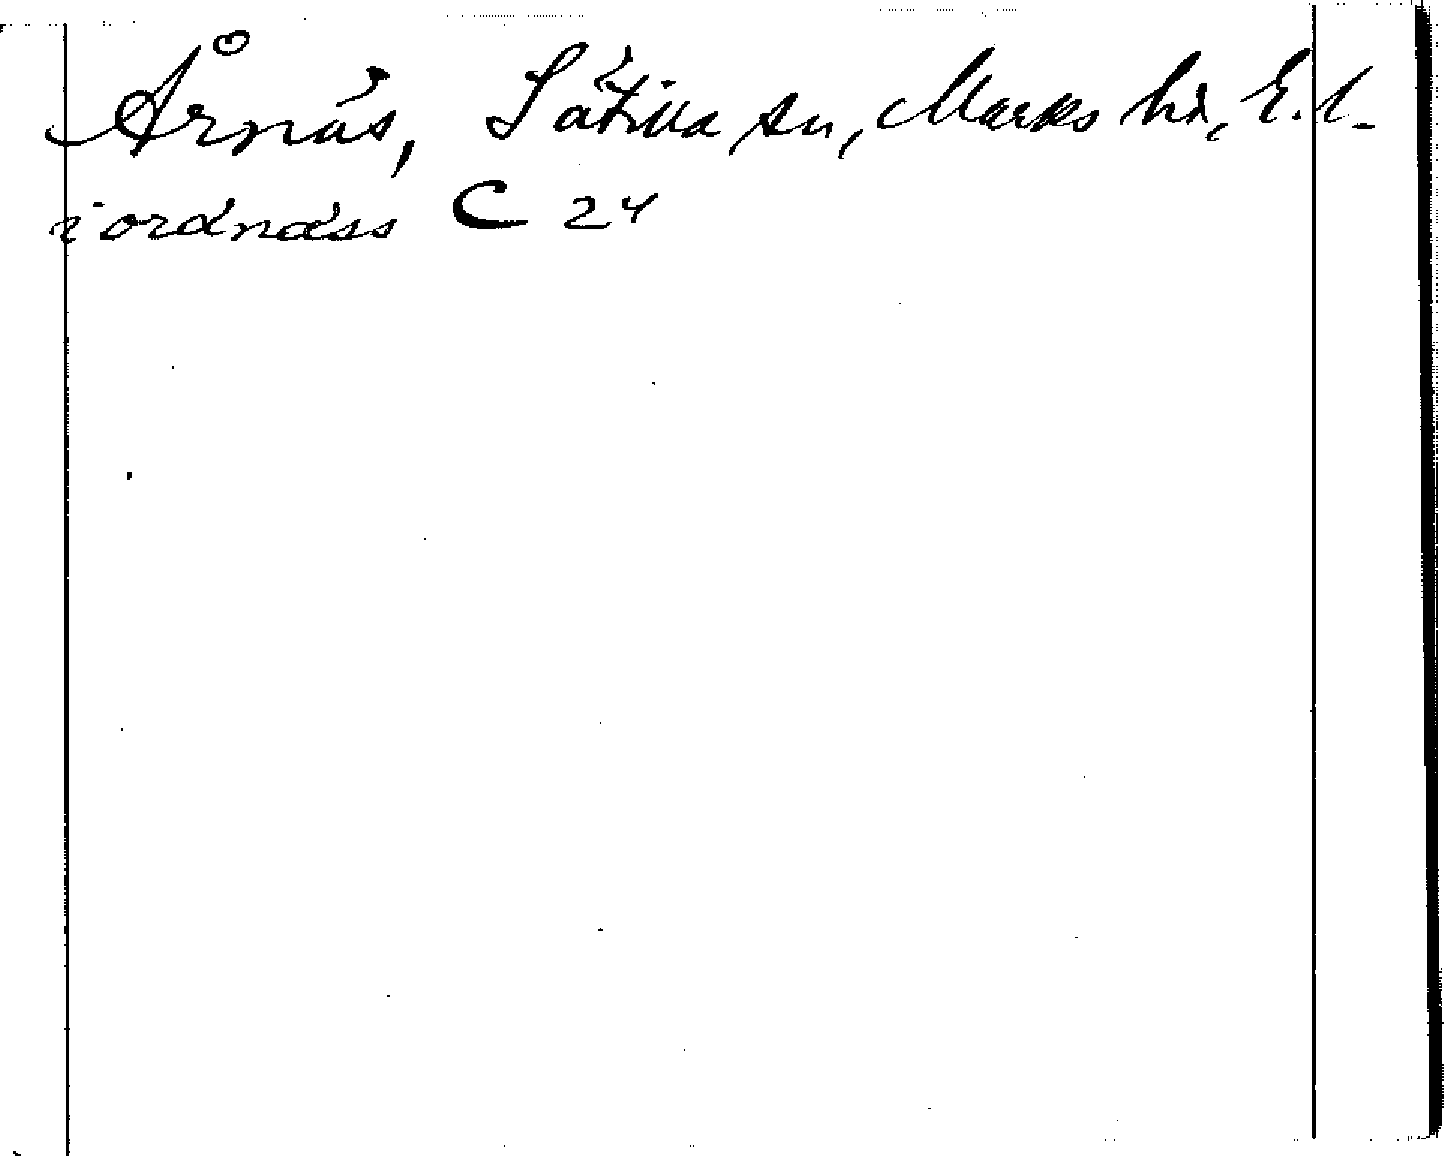 Årnäs, Sätila sn, Marks hd, E.l.
i ordnäss C 24